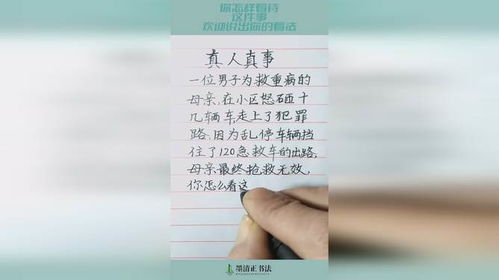 你怎样看待
这件事
欢迎说出你的看法
真人真事
一位男子为救重病的
母亲,在小区怒砸十
几辆车,走上了犯罪
路.因为乱停车辆挡
住了120急救车的出路,
母亲最终抢救无效,
你怎么看这
墨清正书法